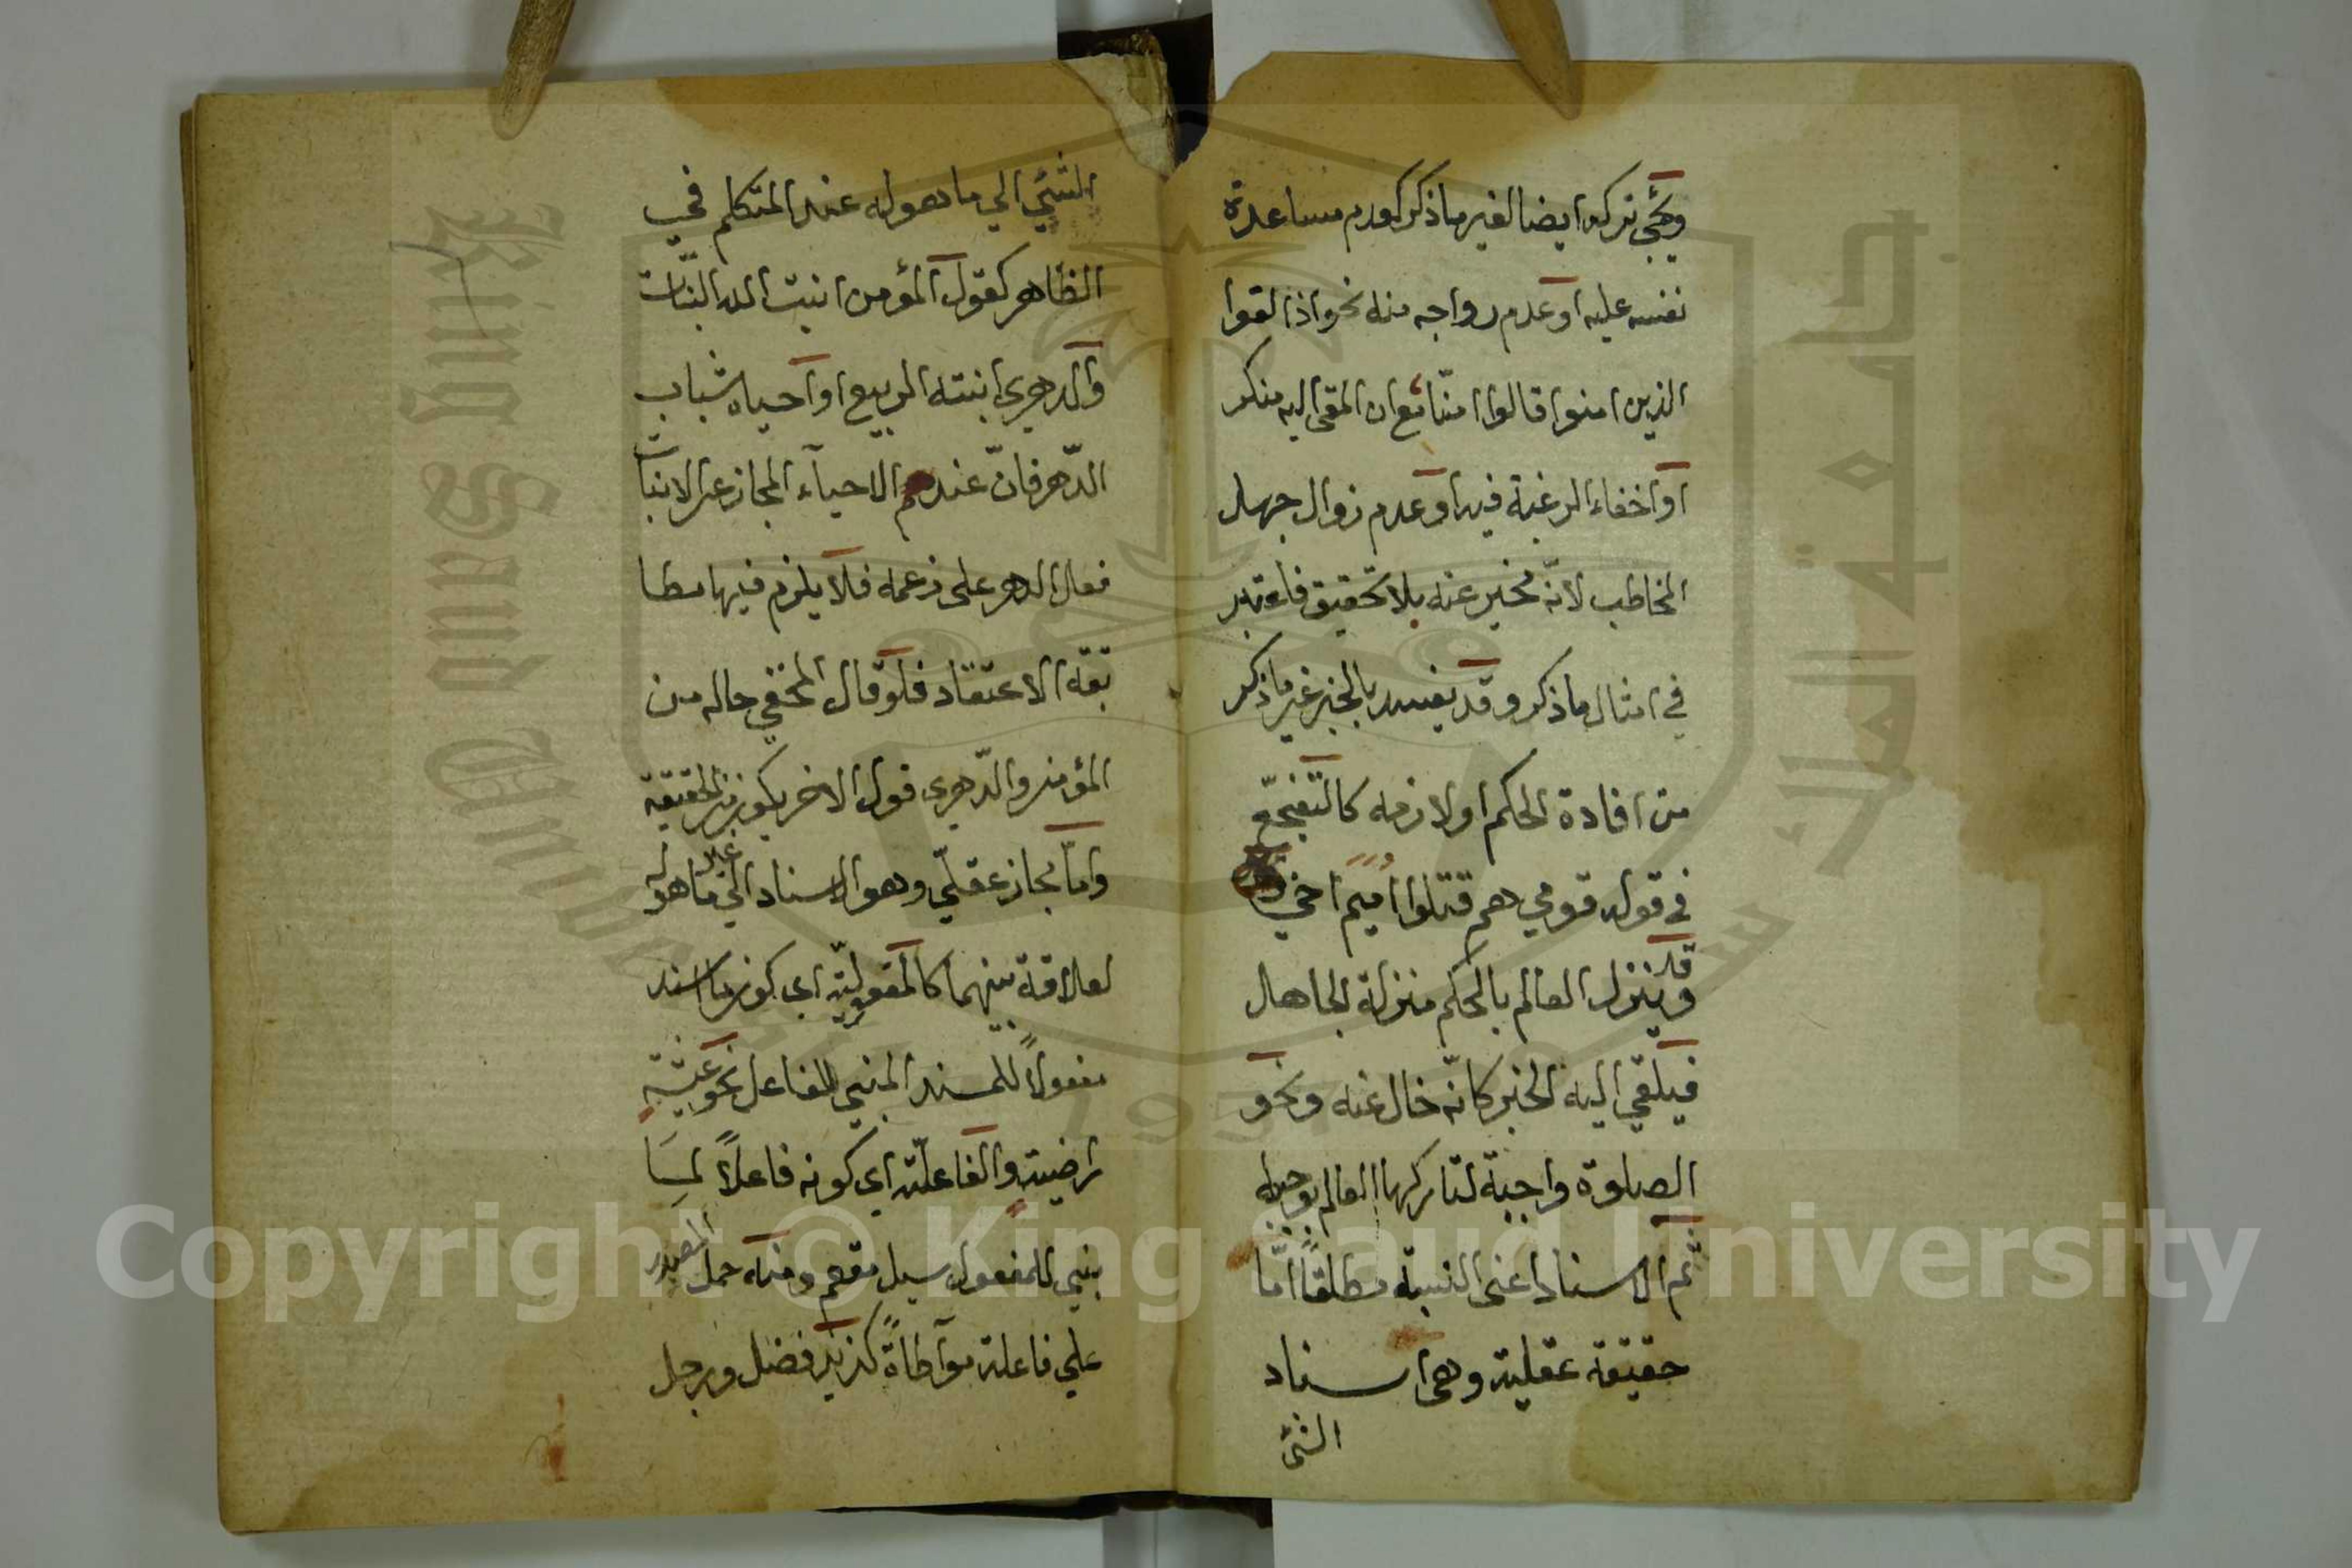 ويجئ تركه ايضا لغير ما ذكر كعدم مساعدة
نفسه عليه او عدم رواجه منه نحو اذا لقوا
الذين امنوا قالوا امنّا مع ان الملقى اليه منكر
او اخفاء الرغبة فيه او عدم زوال جهل
المخاطب لانّه مخبر عنه بلا تحقيق فاعتبر
في امثال ما ذكر وقد يقصد بالخبر غير ما ذكر
من افادة الحكم او لازمه كالتّفجّع
في قوله قومي هم قتلوا اميم اخي
وقد ينزل العالم بالحكم منزلة الجاهل
فيلقي اليه الخبر كانّه خال عنه ونحو
الصلوة واجبة لتاركها العالم بوجوبها
ثم الاسناد اعنى النسبة مطلقًا امّا
حقيقة عقلية وهى اسناد
الشئ
الشئي الي ما هو له عند المتكلم في
الظاهر كقول المؤمن انبت الله النبات
والدهرى انبته الربيع او احياه شباب
الدّهر فانّ عندهم الاحياء المجاز عن الانبات
فعال الدهر على زعمه فلا يلزم فيها مطا
بقة الاعتقاد فلو قال المخفي حاله من
المؤمن والدّهرى قول الاخر يكون من الحقيقة
وامّا مجاز عقليّ وهو الاسناد الي غير ما هو له
لعلاقة بينهما كالمفعوليّة اى كون ما اسند
مفعولاً للمسند المبني للفاعل نحو عيشة
راضية والفاعليّة اي كونه فاعلاً لمسا
بني للمفعول سيل مفعم ومنه حمل المصدر
علي فاعله مواطاةً كزيد فضل ورجل
Copyright © King Saud University
King Saud University
جامعة الملك سعود
1957